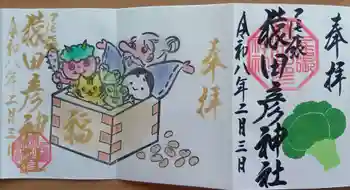 奉拝
猿田彦神社
令和八年二月三日
奉拝
福
奉拝
猿田彦神社
令和八年二月三日